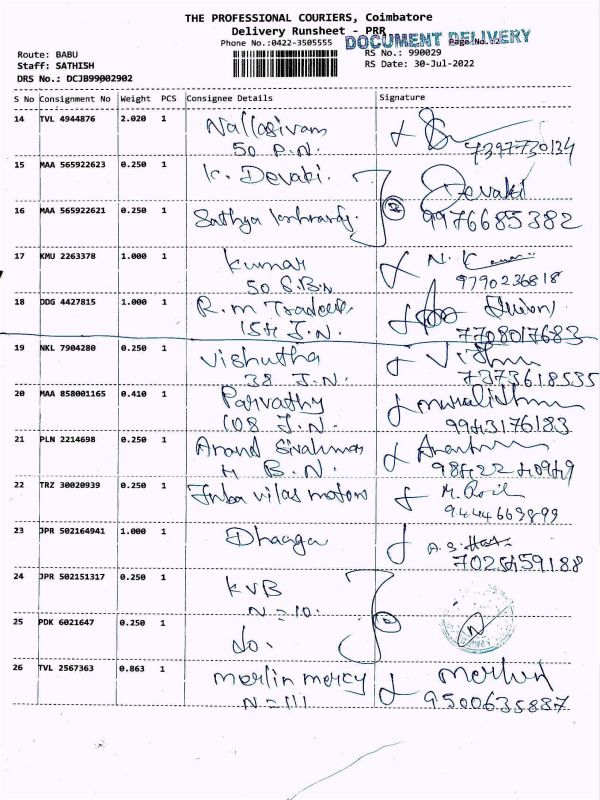 THE PROFESSIONAL COURIERS, Coimbatore
Delivery Runsheet - PRR
Phone No.:0422-3505555 DOCUMENT DELIVERY
Route: BABU RS No.: 990029
Staff: SATHISH RS Date: 30-Jul-2022
DRS No.: DCJB99002902
S No Consignment No Weight PCS Consignee Details Signature
14 TVL 4944876 2.020 1 Nallasivam
50 P.N. 7397730134
15 MAA 565922623 0.250 1 K. Devaki. Devaki
16 MAA 565922621 0.250 1 Sathya 9976685382
17 KMU 2263378 1.000 1 Kumar N. Kumar
50 S.B.N 9790236818
18 DDG 4427815 1.000 1 R.M Traders
154 J.N. 7708017683
19 NKL 7904280 0.250 1 Vishutha
38 J.N. 7373618535
20 MAA 858001165 0.410 1 Parvathy
108 J.N. 9943176183
21 PLN 2214698 0.250 1 Anand
4 B.N. 9842240949
22 TRZ 30020939 0.250 1 Inba vilas motors
9444669899
23 JPR 502164941 1.000 1 Dhaaga A.S.
7025459188
24 JPR 502151317 0.250 1 KVB
N=10.
25 PDK 6021647 0.250 1 do.
26 TVL 2567363 0.863 1 merlin mercy merlin
N=111 9500635887